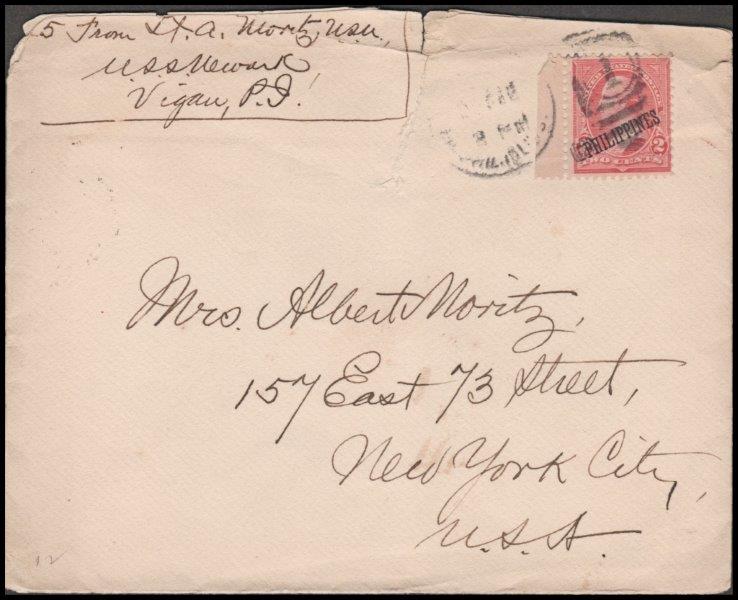 5 From Lt. A. Moritz, USN,
U.S.S Newark
Vigan, P.I.
PHILIPPINES
2
TWO CENTS
Mrs. Albert Moritz,
157 East 73 Street,
New York City,
U.S.A.
12